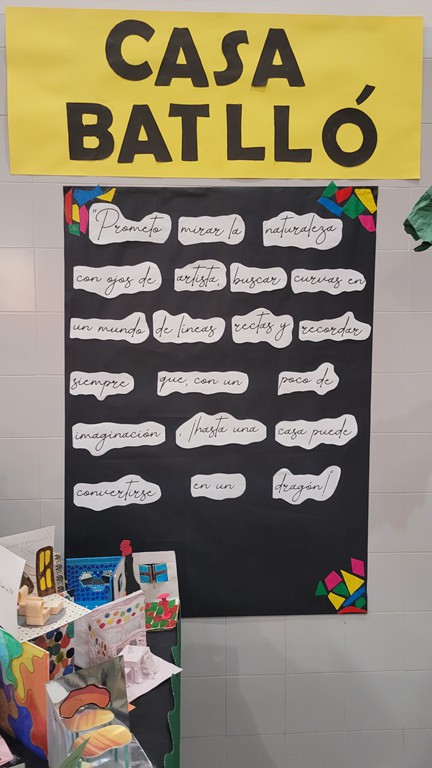 CASA
BATLLÓ
"Prometo mirar la naturaleza
con ojos de artista, buscar curvas en
un mundo de líneas rectas y recordar
siempre que, con un poco de
imaginación, ¡hasta una casa puede
convertirse en un dragón!"